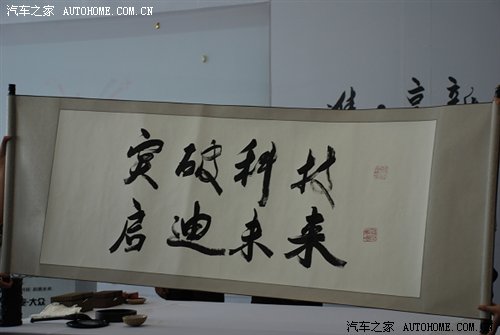 汽车之家 AUTOHOME.COM.CN
突破科技
启迪未来
大众
汽车之家 AUTOHOME.COM.CN